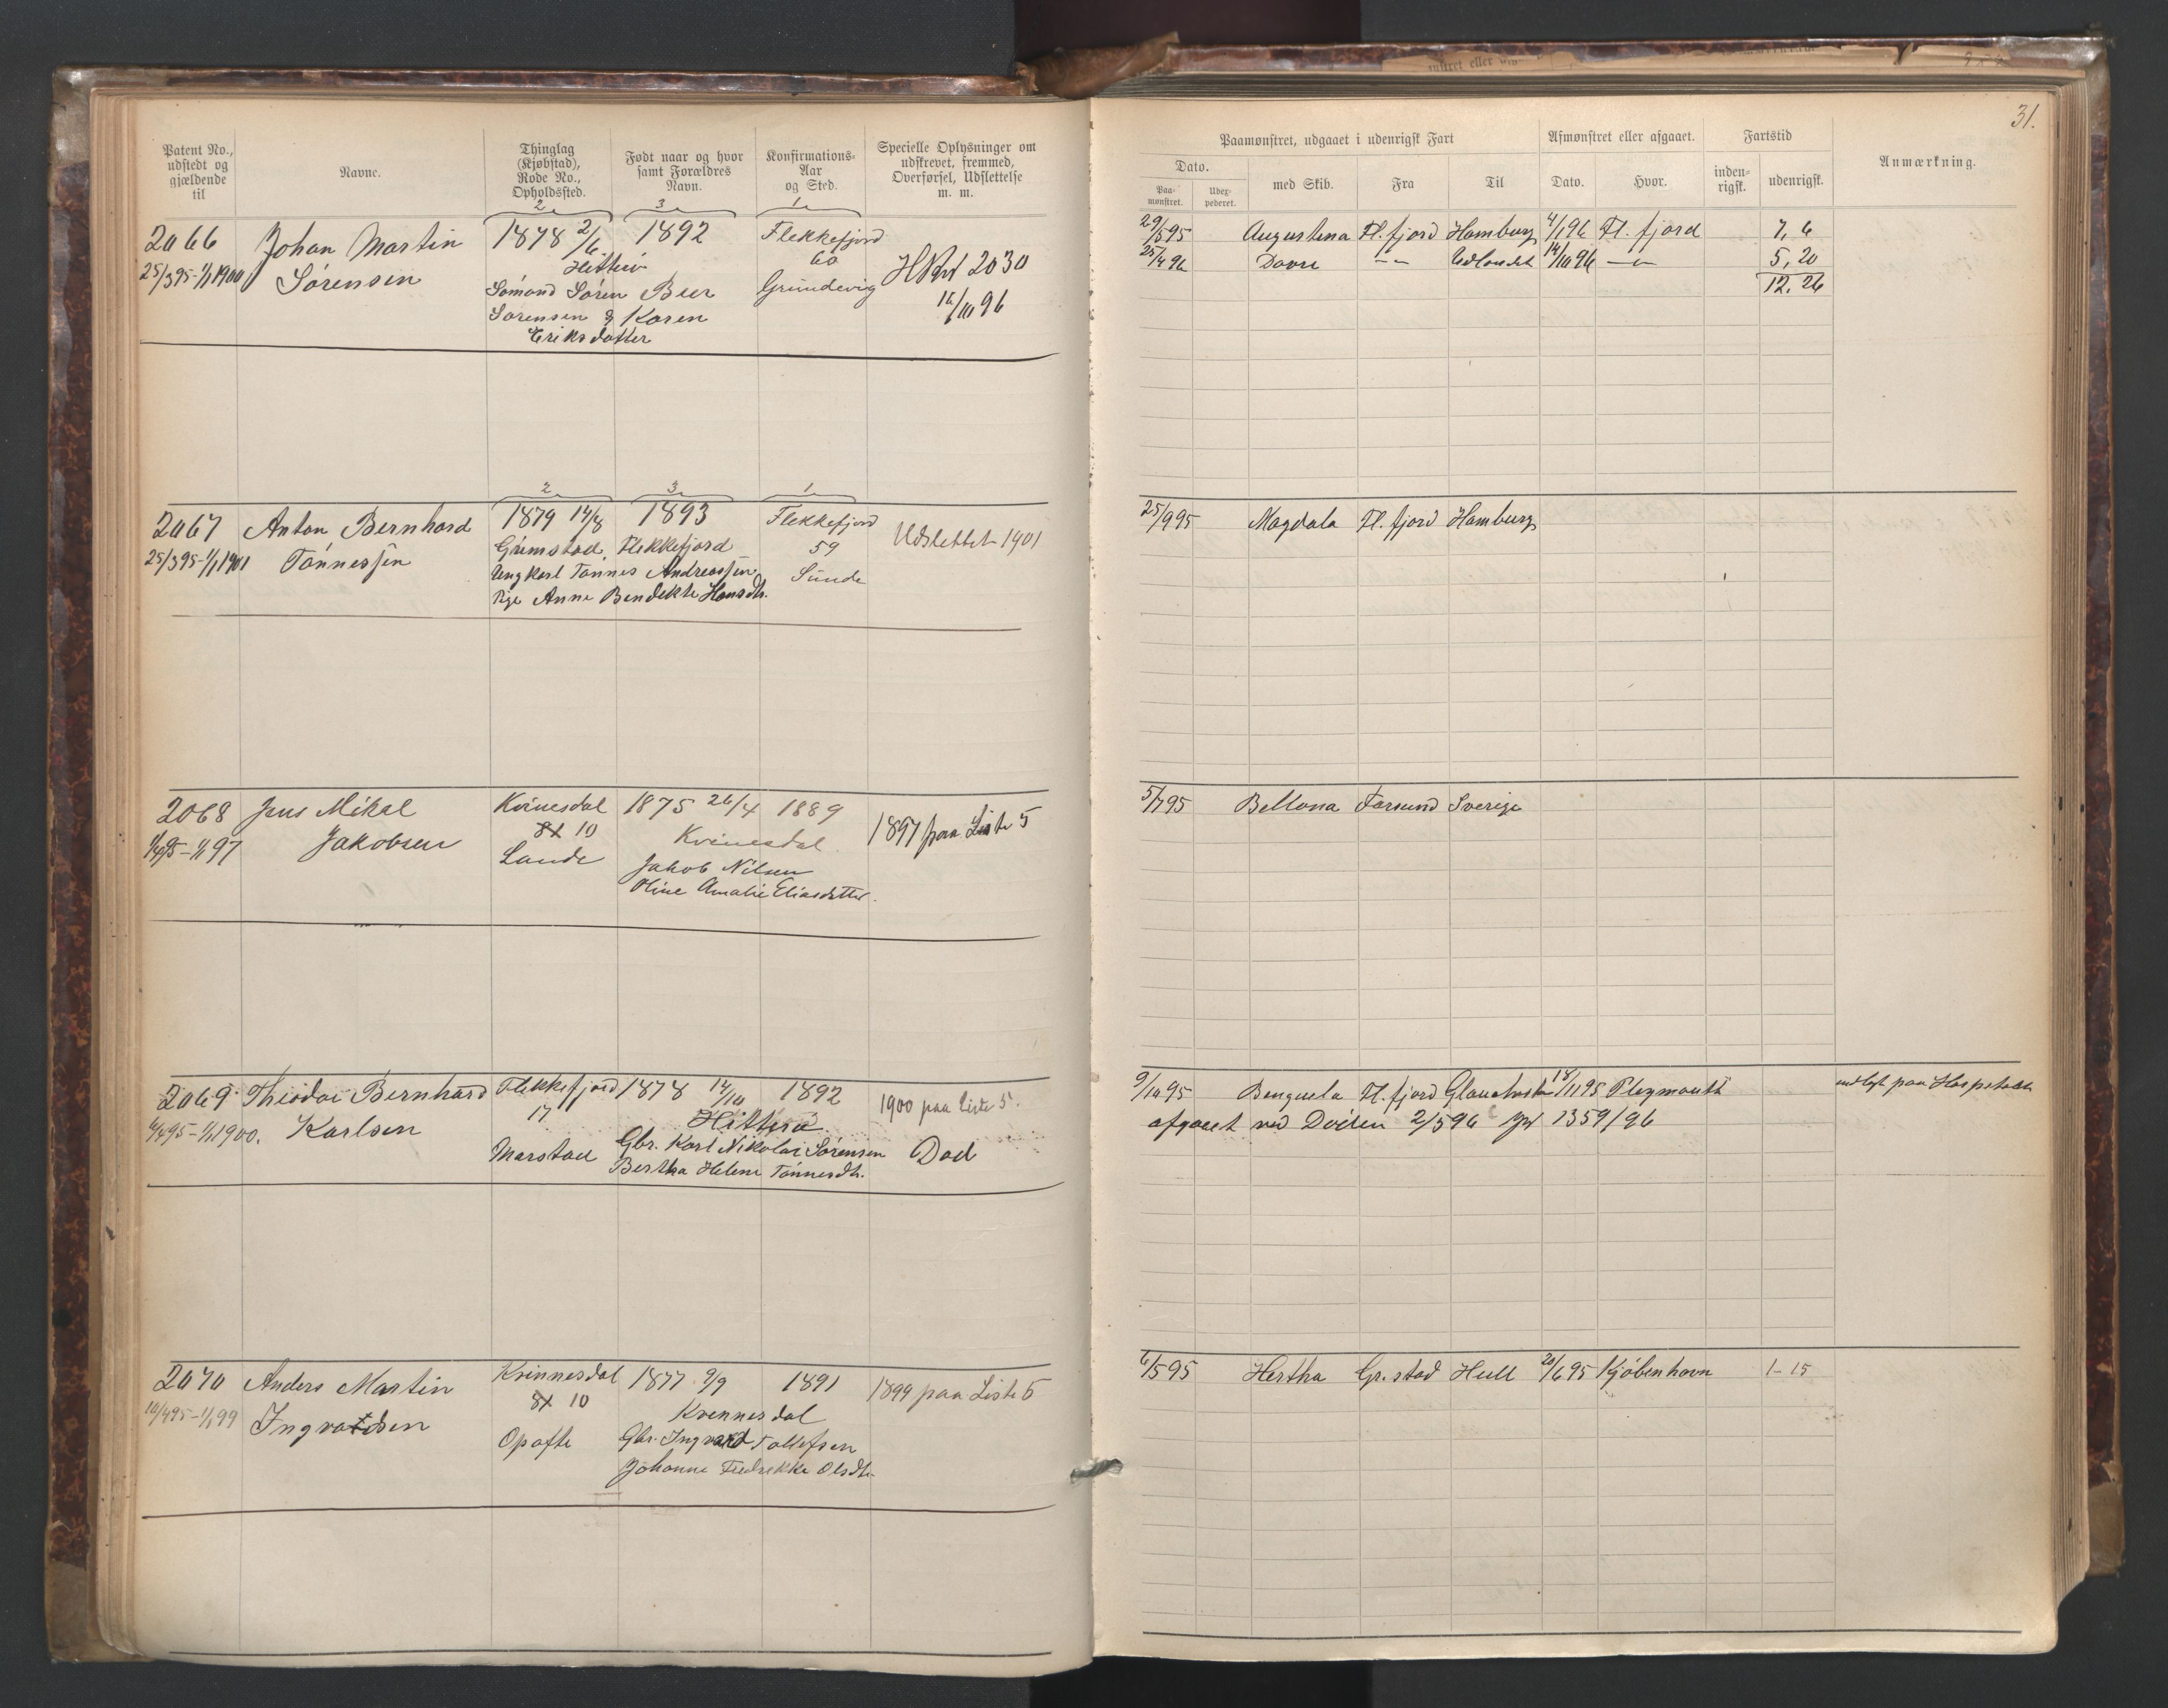 31.
Patent No., udstedt og gjældende til
Navne.
Thinglag (Kjøbstad), Rode No., Opholdssted.
Født naar og hvor samt Forældres Navn.
Konfirmations-Aar og Sted.
Specielle Oplysninger om udskrevet, fremmed, Overførsel, Udslettelse m. m.
Paamønstret, udgaaet i udenrigsk Fart
Afmønstret eller afgaaet.
Fartstid
Anmærkning.
Dato.
Paa-mønstret.
med Skib.
Fra
Til
Dato.
Hvor.
inden-rigsk.
udenrigsk.
2 3 1
2066 Johan Martin 1878 2/6 1892 Flekkefjord
25/3 95-1/1 1900 Sørensen Hitterø 60
Sømand Søren Beer Grundevig
Sørensen & Karen
Eriksdatter
2030
16/10 96
29/5 95 Augustina Fl.fjord Hamburg 4/1 96 Fl.fjord 7, 6
25/4 96 Dovre -"- Udlandet 14/10 96 -"- 5, 20
12. 26
2 3 1
2067 Anton Bernhard 1879 14/8 1893 Flekkefjord Udslettet 1901
25/3 95-1/1 1901 Tønnessen Grimstad, Flekkefjord 59
Ungkarl Tønnes Andreassen Sunde
Pige Anne Bendekte Hansdtr.
25/9 95 Magdala Fl.fjord Hamburg
2068 Jens Mikal Kvinesdal 1875 26/4 1889 1897 paa Liste 5
1/4 95-1/1 97 Jakobsen 10 Kvinesdal
Lande Jakob Nilsen
Oline Amalie Eliasdatter.
5/7 95 Bellona Farsund Sverige
2069 Theodor Bernhard Flekkefjord 1878 14/10 1892 1900 paa Liste 5.
95-1/1 1900. Karlsen 17 Hitterø
Marstad Gbr. Karl Nikolai Sørensen Død
Bertha Helene Tønnesdtr.
9/10 95 Benguela Fl.fjord 18/11 95 Pleymouth indlagt paa Hospitalet
afgaaet ved Døden 2/5 96 1359/96
2070 Anders Martin Kvinnesdal 1877 9/9 1891 1899 paa Liste 5
10/4 95-1/1 99 Ingvardsen 10 Kvennesdal
Opofte Gbr. Ingvard Tollefsen
Johanne Fredrekke Olsdtr.
6/5 95 Hertha Gr.stad Hull 20/6 95 Kjøbenhavn 1-15